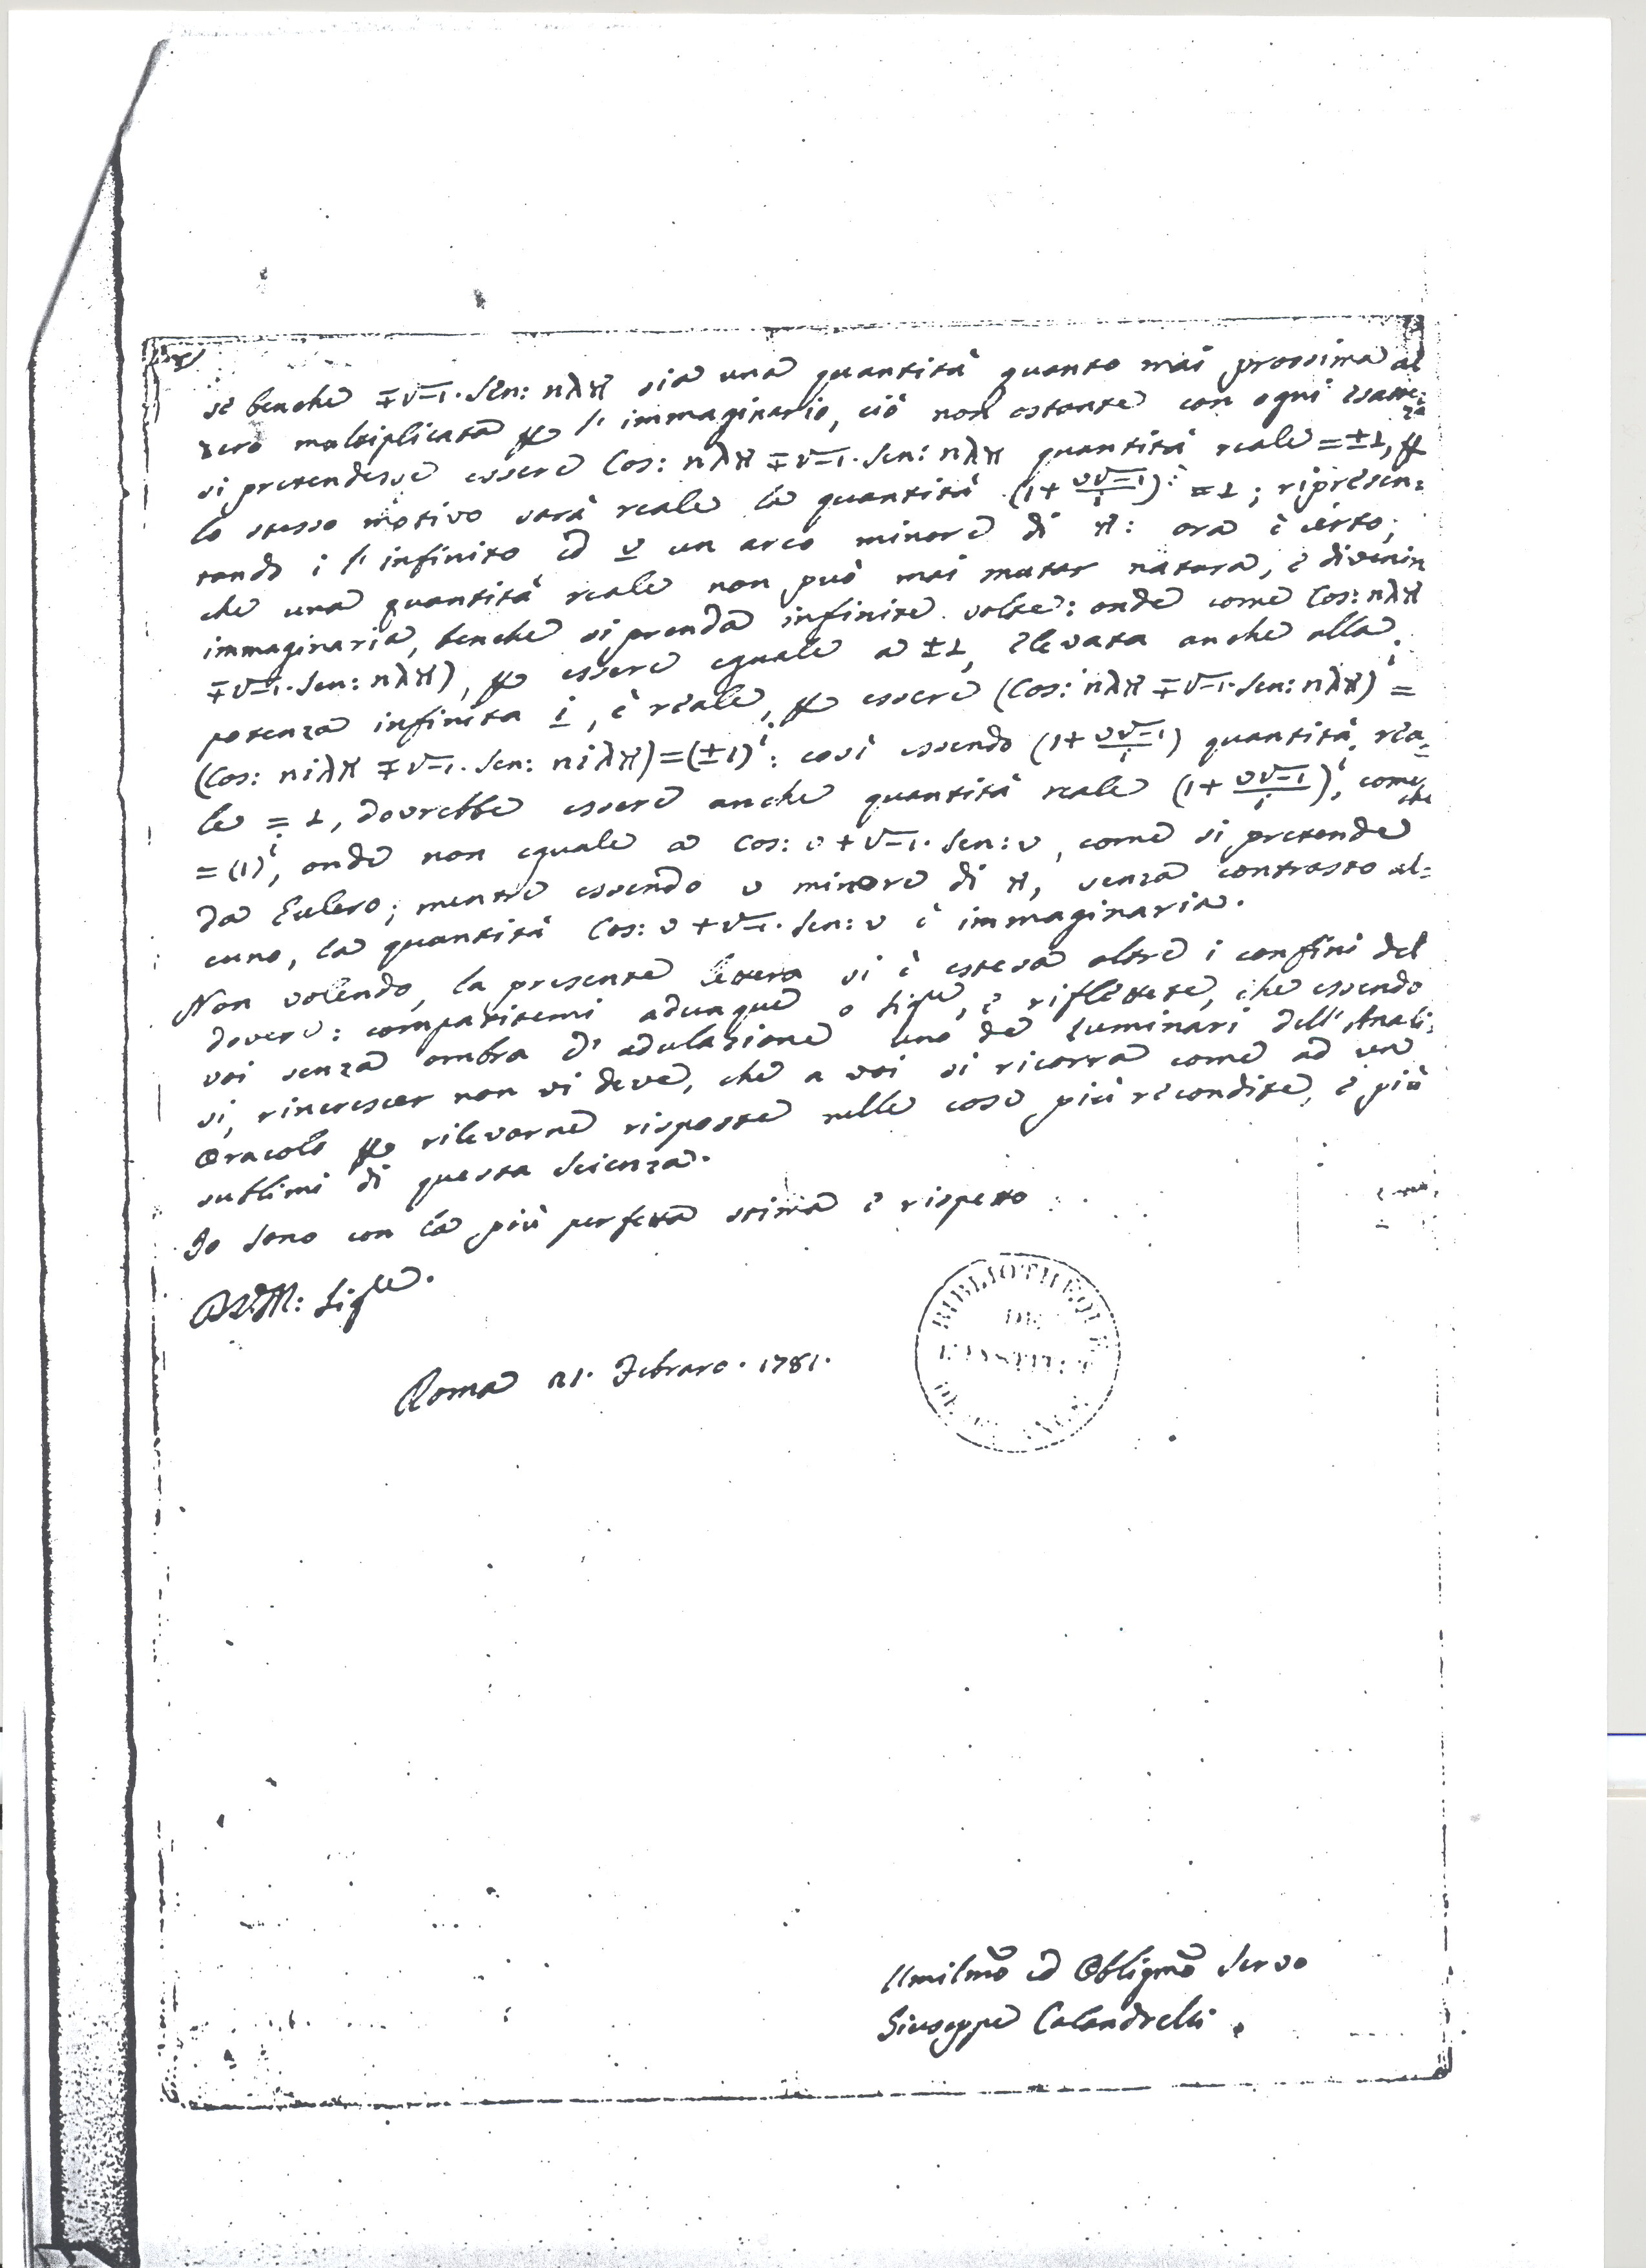 se benche ∓√-1. Sen: nλπ sia una quantità quanto mai prossima al
zero moltiplicata per l'immaginario, ciò non ostante con ogni esattez:
za
si pretendesse essere Cos: nλπ ∓√-1. Sen: nλπ quantità reale = ±1, per
lo stesso motivo sarà reale la quantità (1+ υ√-1/i) = 1; ripresen:
tando i l'infinito, ed υ un arco minore di π: ora è certo,
che una quantità reale non può mai mutar natura, e divenir
immaginaria, benche si prenda infinite volte: onde come Cos: nλπ
∓√-1. Sen: nλπ), per essere eguale a ±1, elevata anche alla
potenza infinita i, è reale, per essere (Cos: nλπ ∓√-1. Sen: nλπ)^i =
(Cos: niλπ ∓√-1. Sen: niλπ) = (±1)^i: così essendo (1+ υ√-1/i) quantità rea=
le = 1, dovrebbe essere anche quantità reale (1+ υ√-1/i)^i, come
che
= (1)^i, onde non eguale a Cos: υ + √-1. Sen: υ, come si pretende
da Eulero; mentre essendo υ minore di π, senza contrasto al=
cuno, la quantità Cos: υ + √-1. Sen: υ è immaginaria.
Non volendo, la presente lettera si è estesa oltre i confini del
dovere: compatitemi adunque o Sigre, e riflettete, che essendo
voi senza ombra d'adulazione uno de Luminari dell'Anali:
si, rincrescer non vi deve, che a voi si ricorra come ad un
Oracolo per rilevarne risposte nelle cose più recondite, e più
sublimi di questa Scienza.
Io sono con la più perfetta stima e rispetto
Sigre.
Roma 21. Febraro. 1781.
BIBLIOTHEQUE
DE
L'INSTITUT
Umilmo ed Obligmo Servo
Giuseppe Calandrelli.